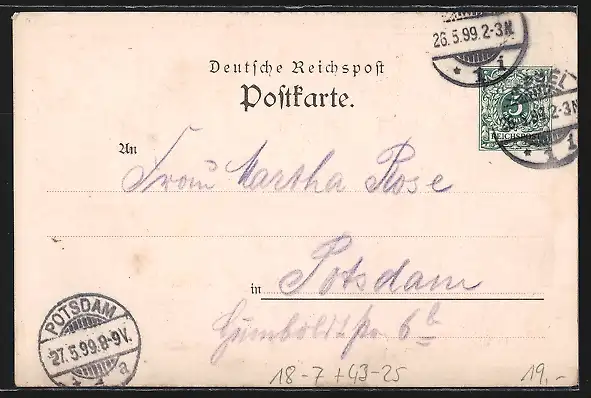 26.5.99.2-3N.
* 1 i
Deutsche Reichspost
Postkarte.
5
REICHSPOST
2-3N
* 1 i
An
Frau Martha Rose
in Potsdam
Humboldtstr 6b
POTSDAM
27.5.99.8-9V.
* 1 a
18-7+43-25
19,-